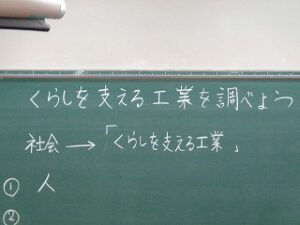 くらしを支える工業を調べよう
社会→「くらしを支える工業」
① 人
②